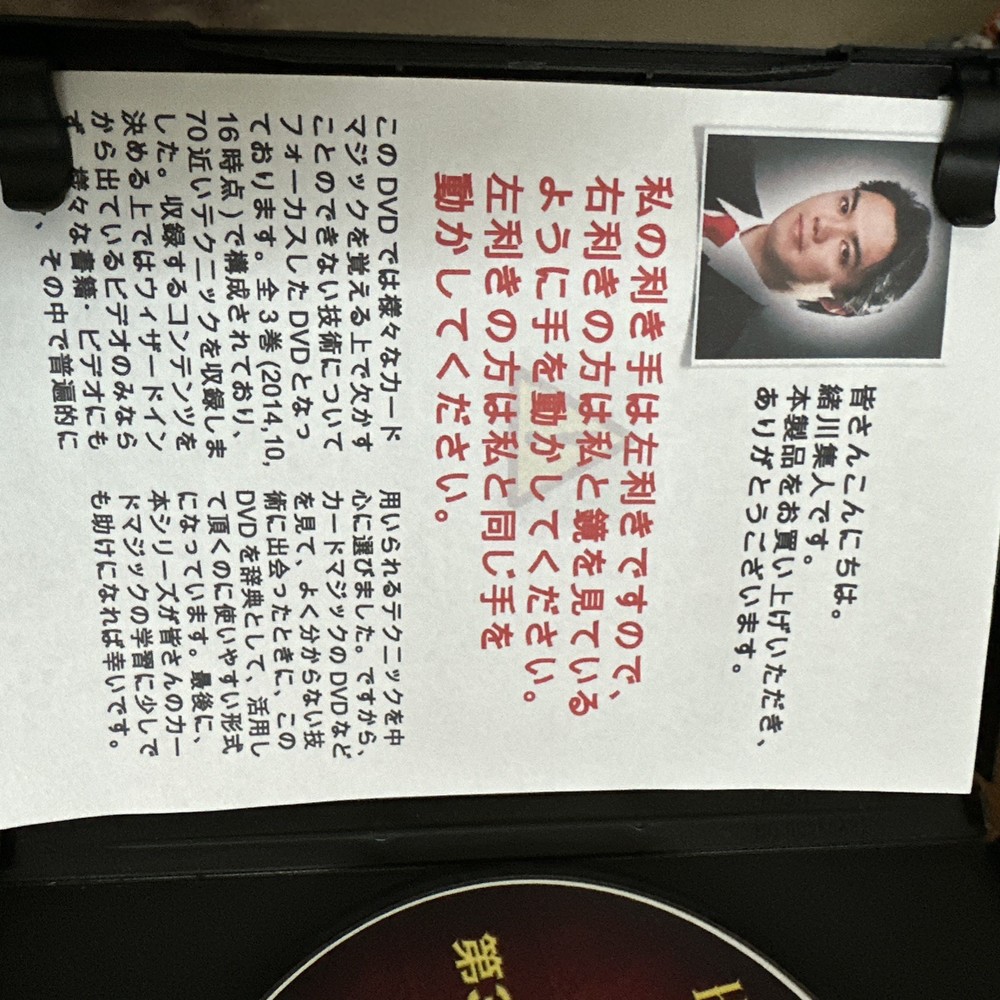 皆さんこんにちは。
緒川集人です。
本製品をお買い上げいただき、
ありがとうございます。
私の利き手は左利きですので、
右利きの方は私と鏡を見ている
ように手を動かしてください。
左利きの方は私と同じ手を
動かしてください。
このDVDでは様々なカード
マジックを覚える上で欠かす
ことのできない技術について
フォーカスしたDVDとなっ
ております。全3巻(2014,10,
16時点)で構成されており、
70近いテクニックを収録しま
した。収録するコンテンツを
決める上ではウィザードイン
から出ているビデオのみなら
ず、様々な書籍・ビデオにも
、その中で普遍的に
用いられるテクニックを中
心に選びました。ですから、
カードマジックのDVDなど
を見て、よく分からない技
術に出会ったときに、この
DVDを辞典として、活用し
て頂くのに使いやすい形式
になっています。最後に、
本シリーズが皆さんのカー
ドマジックの学習に少しで
も助けになれば幸いです。
第3